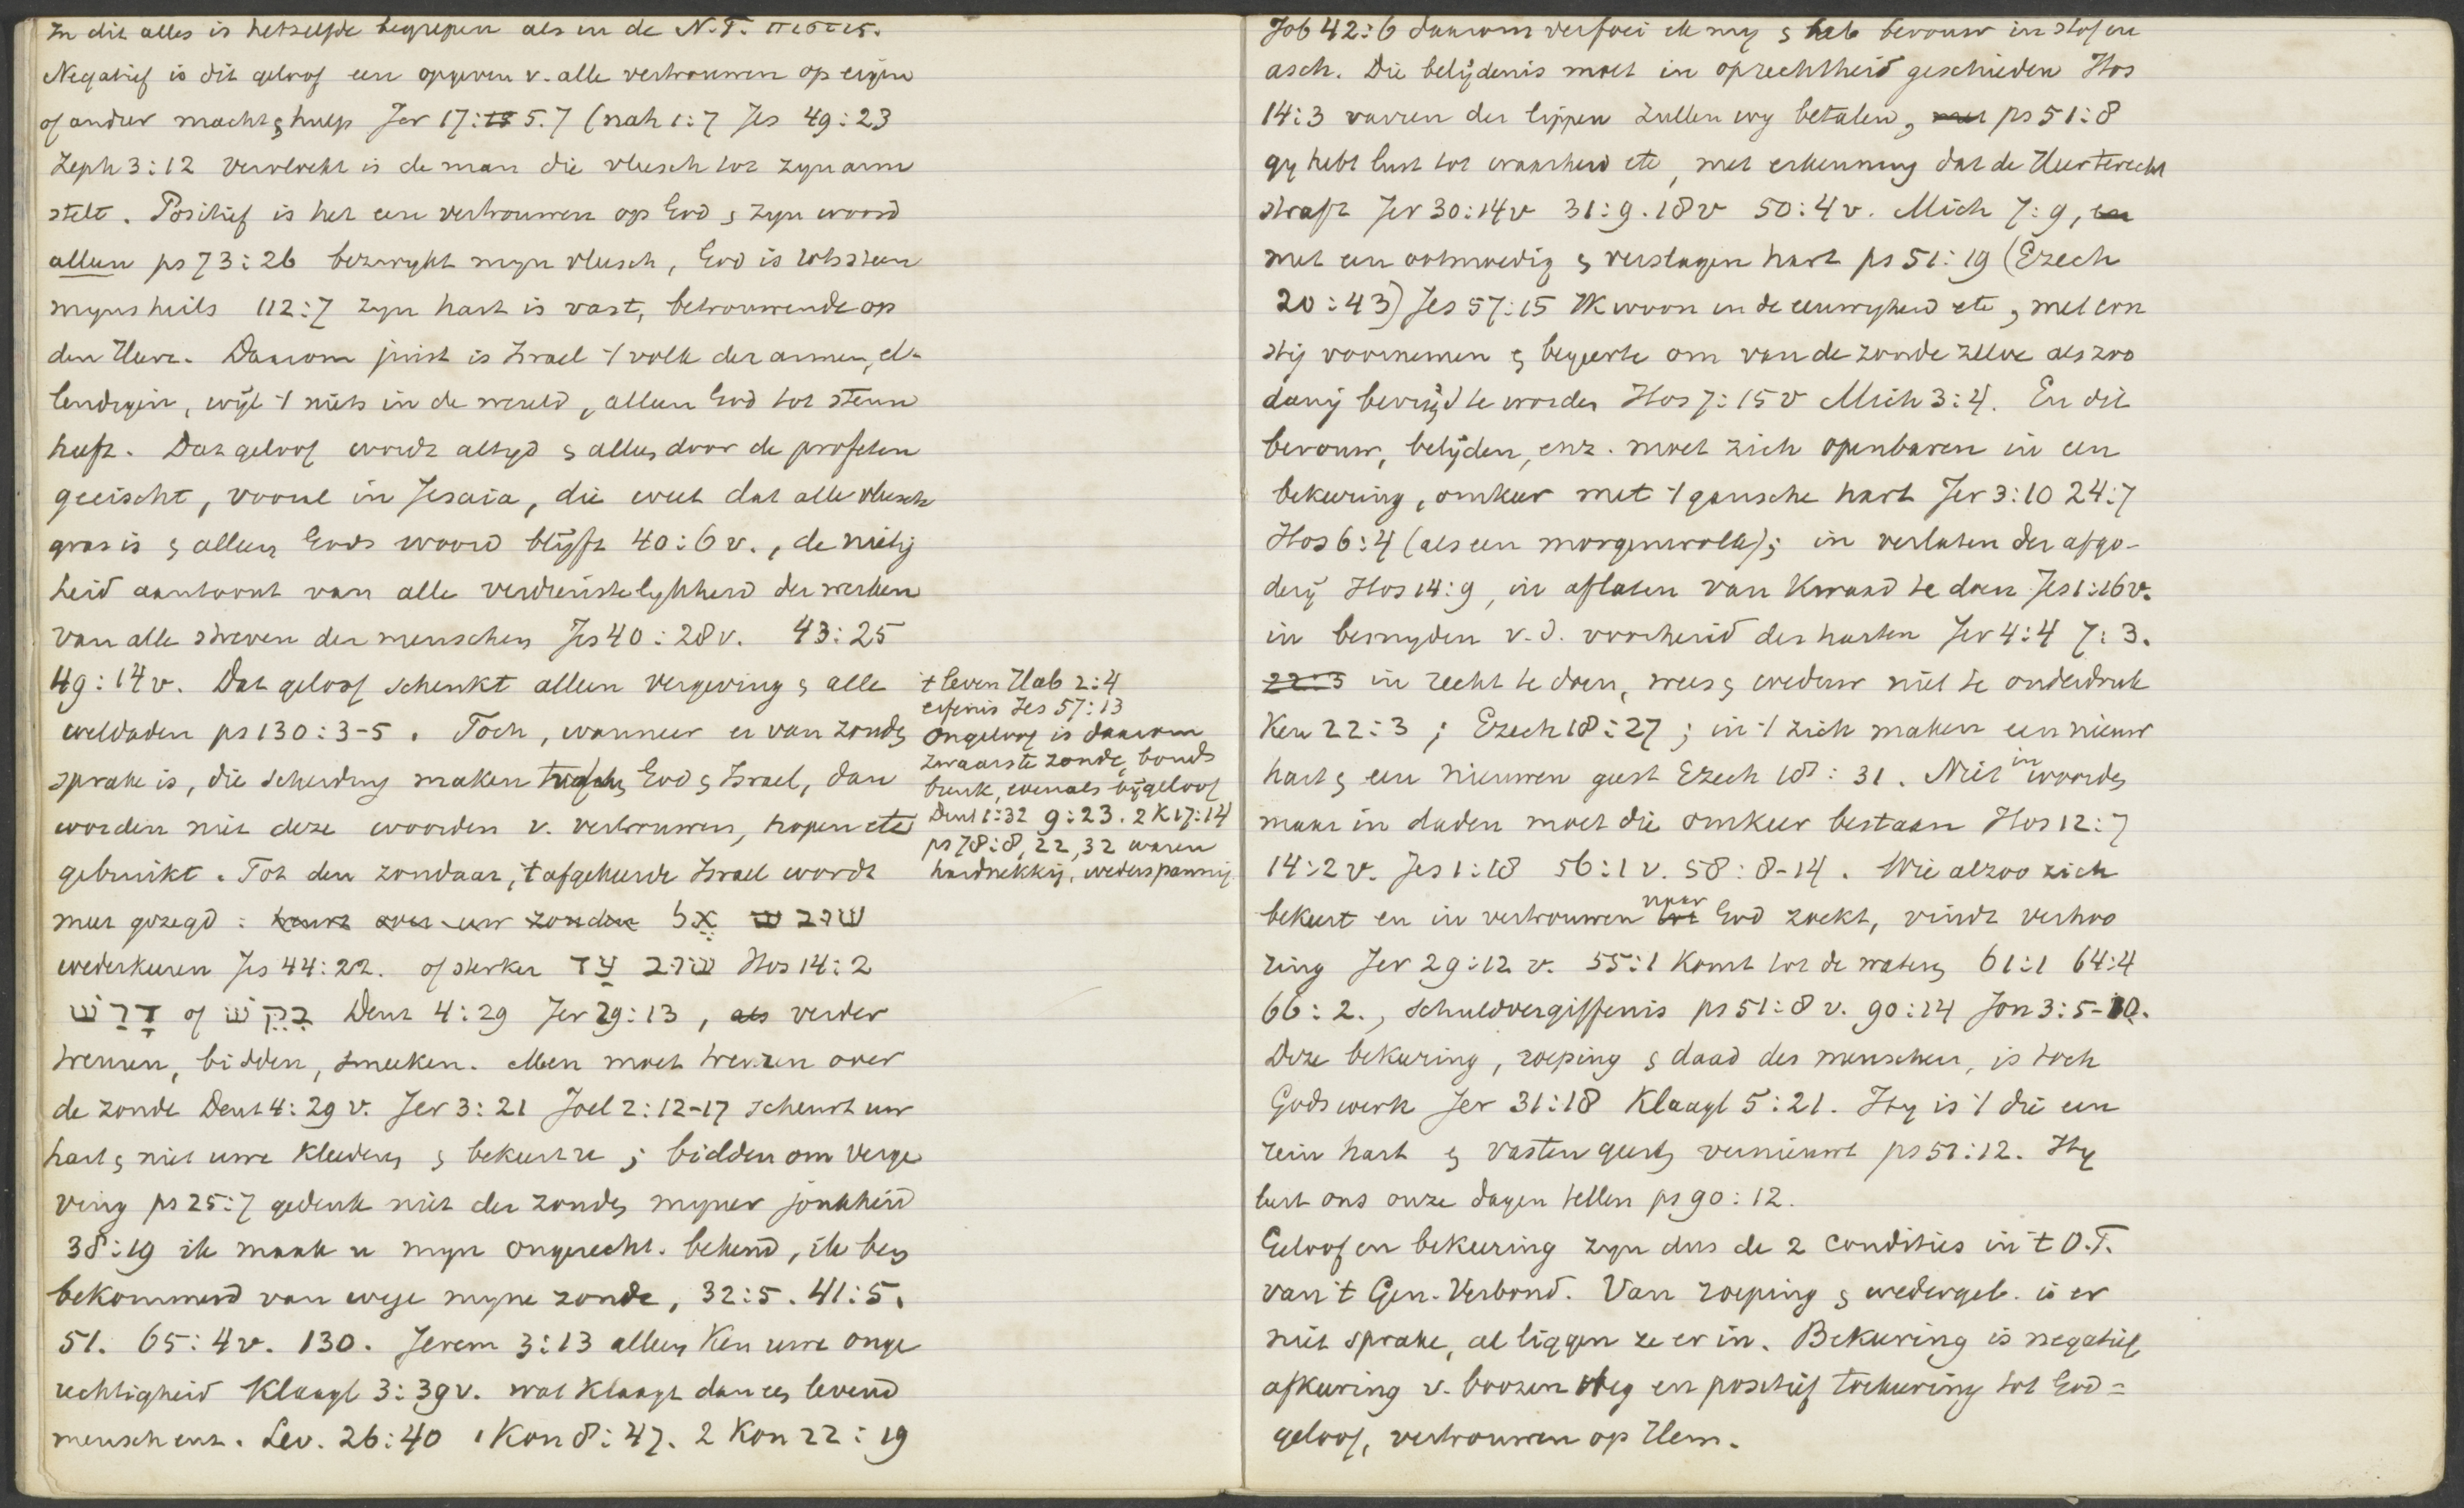 In dit alles is hetzelfde begrepen als in de N.T. πιστις.
Negatief is dit geloof een opgeven v. alle vertrouwen op eigen
of ander macht & hulp Jer 17:15 5.7 (nah 1:7 Jes 49:23
Zeph 3:12 Vervloekt is de man die vleesch tot zijn arm
stelt. Positief is het een vertrouwen op God & zijn woord
alleen ps 73:26 bezwijkt mijn vleesch, God is rotssteen
mijns heils 112:7 zijn hart is vast, betrouwende op
den Heere. Daarom juist is Israel 't volk der armen, el-
lendigen, wijl 't niets in de wereld, alleen God tot steun
heeft. Dat geloof wordt altijd & alles door de profeten
geeischt, voorne in Jesaia, die weet dat alle vleesch
gras is & alleen Gods woord blijft 40:6 v., de nietig
heid aantoont van alle verdienstelijkheid der werken
van alle streven der menschen Jes 40:28 v. 43:25
49:14 v. Dat geloof schenkt alleen vergeving & alle
weldaden ps 130:3-5. Toch, wanneer er van zonde
sprake is, die scheiding maken tusschen God & Israel, dan
worden niet deze woorden v. vertrouwen, hopen etc
gebruikt. Tot den zondaar, 't afgekeerde Israel wordt
meer gezegd: treurt over uw zonden אֶל ש שוב
wederkeeren Jes 44:22. of sterker שוב עַד Hos 14:2
דָּרַשׁ of בִּקֵּשׁ Deut 4:29 Jer 29:13, als verder
treuren, bidden, smeeken. Men moet treuren over
de zonde Deut 4:29 v. Jer 3:21 Joel 2:12-17 scheurt uw
hart & niet uwe kleederen & bekeert u; bidden om verge
ving ps 25:7 gedenk niet der zonden mijner jonkheid
38:19 ik maak u mijn ongerecht. bekend, ik ben
bekommerd van wege mijne zonde, 32:5. 41:5.
51. 65:4 v. 130. Jerem 3:13 alleen ken uwe onge
rechtigheid Klaagl 3:39 v. wat klaagt dan een levend
mensch enz. Lev. 26:40 1 Kon 8:47. 2 Kon 22:19
't leven Hab 2:4
erfenis Jes 57:13
Ongeloof is daarom
zwaarste zonde, bonds
breuk, evenals bijgeloof
Deut 1:32 9:23. 2 K 17:14
ps 78:8, 22, 32 waren
hardnekkig, wederspannig
Job 42:6 daarom verfoei ik mij & heb berouw in stof en
asch. Die belijdenis moet in oprechtheid geschieden Hos
14:3 varren der lippen zullen wij betalen, met ps 51:8
gij hebt lust tot waarheid etc, met erkenning dat de Heer terecht
straft Jer 30:14 v 31:9.18 v 50:4 v. Mich 7:9, en
met een ootmoedig & verslagen hart ps 51:19 (Ezech
20:43) Jes 57:15 Ik woon in de eeuwigheid etc, met ern
stig voornemen & begeerte om van de zonde zelve als zoo
danig bevrijd te worden Hos 7:15 v Mich 3:4. En dit
berouw, belijden, enz. moet zich openbaren in een
bekeering, omkeer met 't gansche hart Jer 3:10 24:7
Hos 6:4 (als een morgenwolk); in verlaten der afgo-
derij Hos 14:9, in aflaten van kwaad te doen Jes 1:16 v.
in besnijden v. d. voorheid der harten Jer 4:4 7:3.
22:3 in recht te doen, wees & weduw niet te onderdruk
ken 22:3; Ezech 18:27; in 't zich maken een nieuw
hart & een nieuwen geest Ezech 18:31. Niet in woorden
maar in daden moet die omkeer bestaan Hos 12:7
14:2 v. Jes 1:18 56:1 v. 58:8-14. Wie alzoo zich
bekeert en in vertrouwen tot naar God zoekt, vindt verhoo
ring Jer 29:12 v. 55:1 komt tot de wateren 61:1 64:4
66:2., schuldvergiffenis ps 51:8 v. 90:14 Jon 3:5-10.
Deze bekeering, roeping & daad des menschen, is toch
Gods werk Jer 31:18 Klaagl 5:21. Hij is 't die een
rein hart & vasten geest vernieuwt ps 51:12. Hij
leert ons onze dagen tellen ps 90:12.
Geloof en bekeering zijn dus de 2 condities in 't O.T.
van 't Gen. Verbond. Van roeping & wedergeb. is er
niet sprake, al liggen ze er in. Bekeering is negatief
afkeering v. boozen weg en positief toekeering tot God =
geloof, vertrouwen op Hem.